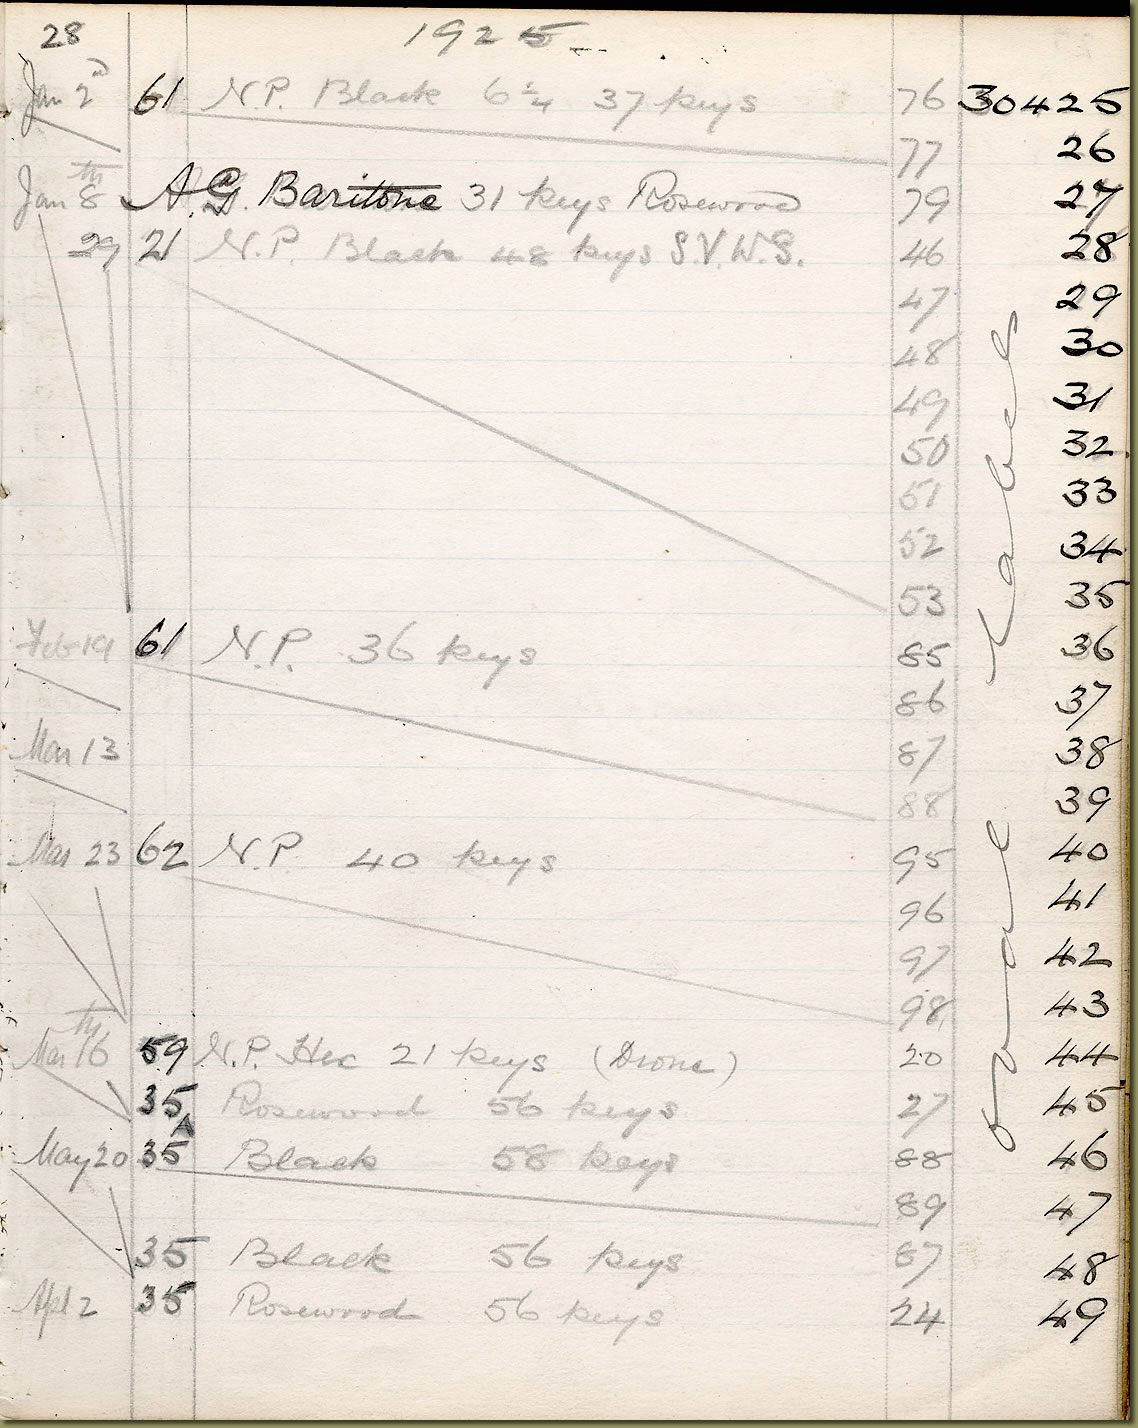 28 1925
Jan 2nd 61 N.P. Black 6 1/4 37 keys 76 30425
77 26
Jan 8th A.G. Baritone 31 keys Rosewood 79 27
29 21 N.P. Black 48 keys S.V.W.S. 46 28
47 29
48 30
49 31
50 32
51 33
52 34
53 35
Feb 19 61 N.P. 36 keys 85 36
86 37
Mar 13 87 38
88 39
Mar 23 62 N.P 40 keys 95 40
96 41
97 42
98 43
Mar 16th 59 N.P. Hex 21 keys (Drone) 20 44
35 Rosewood 56 keys 27 45
May 20 35A Black 58 keys 88 46
89 47
35 Black 56 keys 87 48
Apl 2 35 Rosewood 56 keys 24 49
oval Label